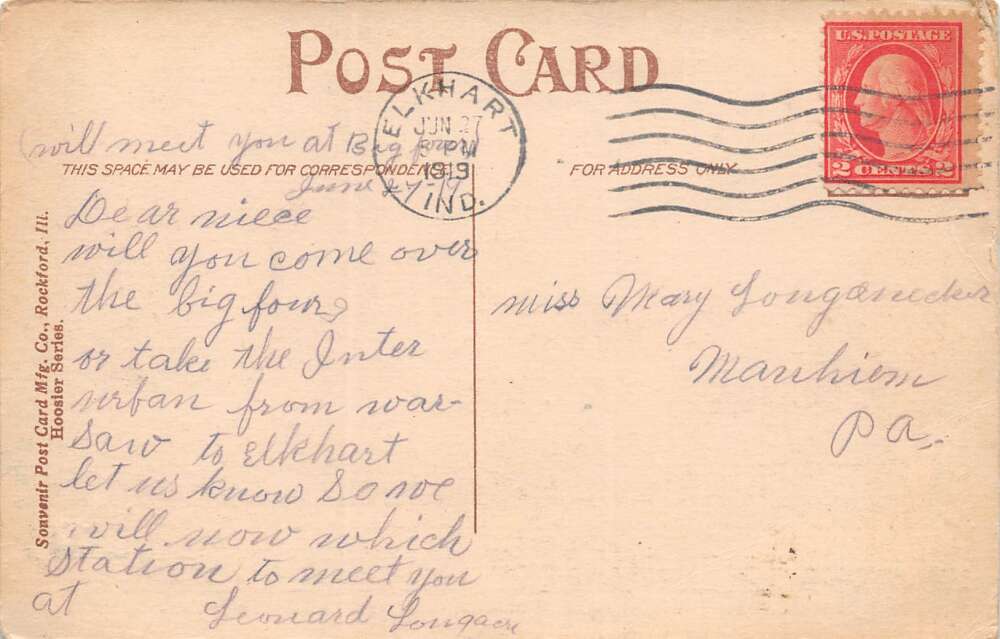 POST CARD
ELKHART
JUN 27
5 PM
1919
IND.
U.S. POSTAGE
2 CENTS 2
(will meet you at Big four)
THIS SPACE MAY BE USED FOR CORRESPONDENCE
FOR ADDRESS ONLY
June 27-19
Dear niece
will you come over
the big four?
or take the Inter
urban from war-
saw to Elkhart
let us know so we
will now which
station to meet you
at
Leonard Longacre
miss Mary Longanecker
Manhiem
Pa.
Souvenir Post Card Mfg. Co., Rockford, Ill.
Hoosier Series.